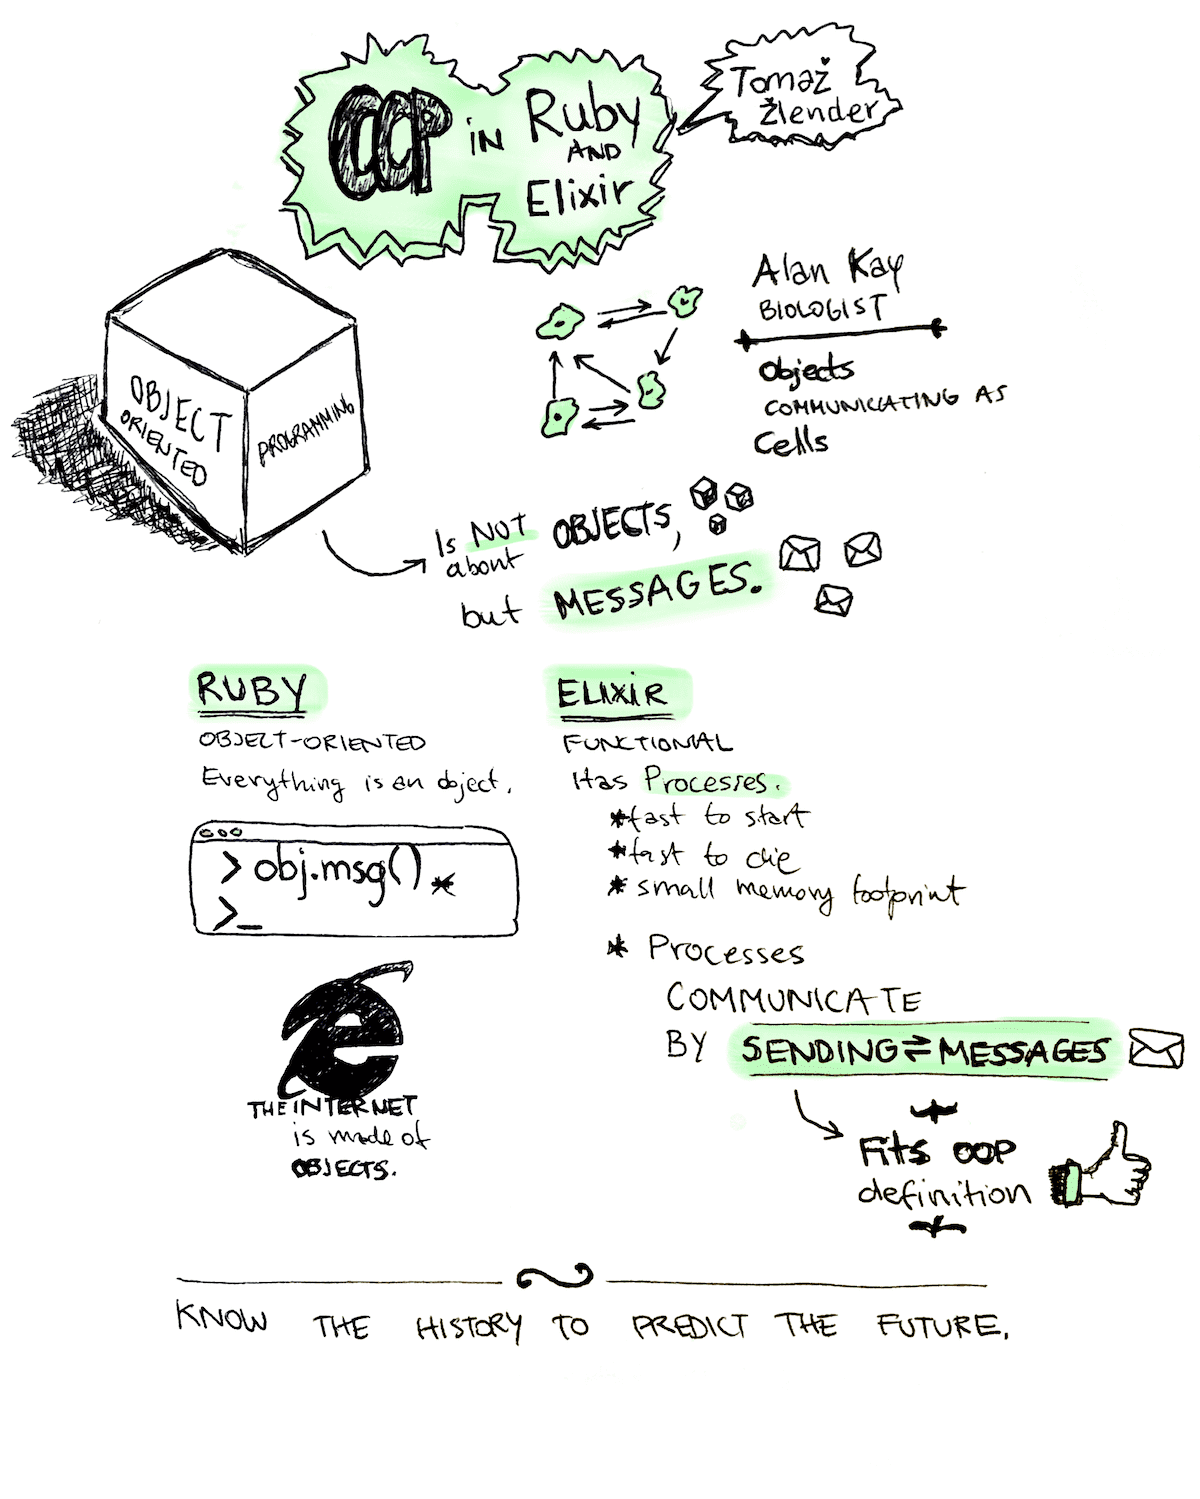 OOP in Ruby
AND
Elixir
Tomaž
Žlender
OBJECT
ORIENTED
PROGRAMMING
Alan Kay
BIOLOGIST
Objects
COMMUNICATING AS
Cells
Is NOT OBJECTS,
about
but MESSAGES.
RUBY
OBJECT-ORIENTED
Everything is an object.
> obj.msg()*
>_
THE INTERNET
is made of
OBJECTS.
ELIXIR
FUNCTIONAL
Has Processes.
*fast to start
*fast to die
* small memory footprint
* Processes
COMMUNICATE
BY SENDING⇄MESSAGES
Fits OOP
definition
KNOW THE HISTORY TO PREDICT THE FUTURE.